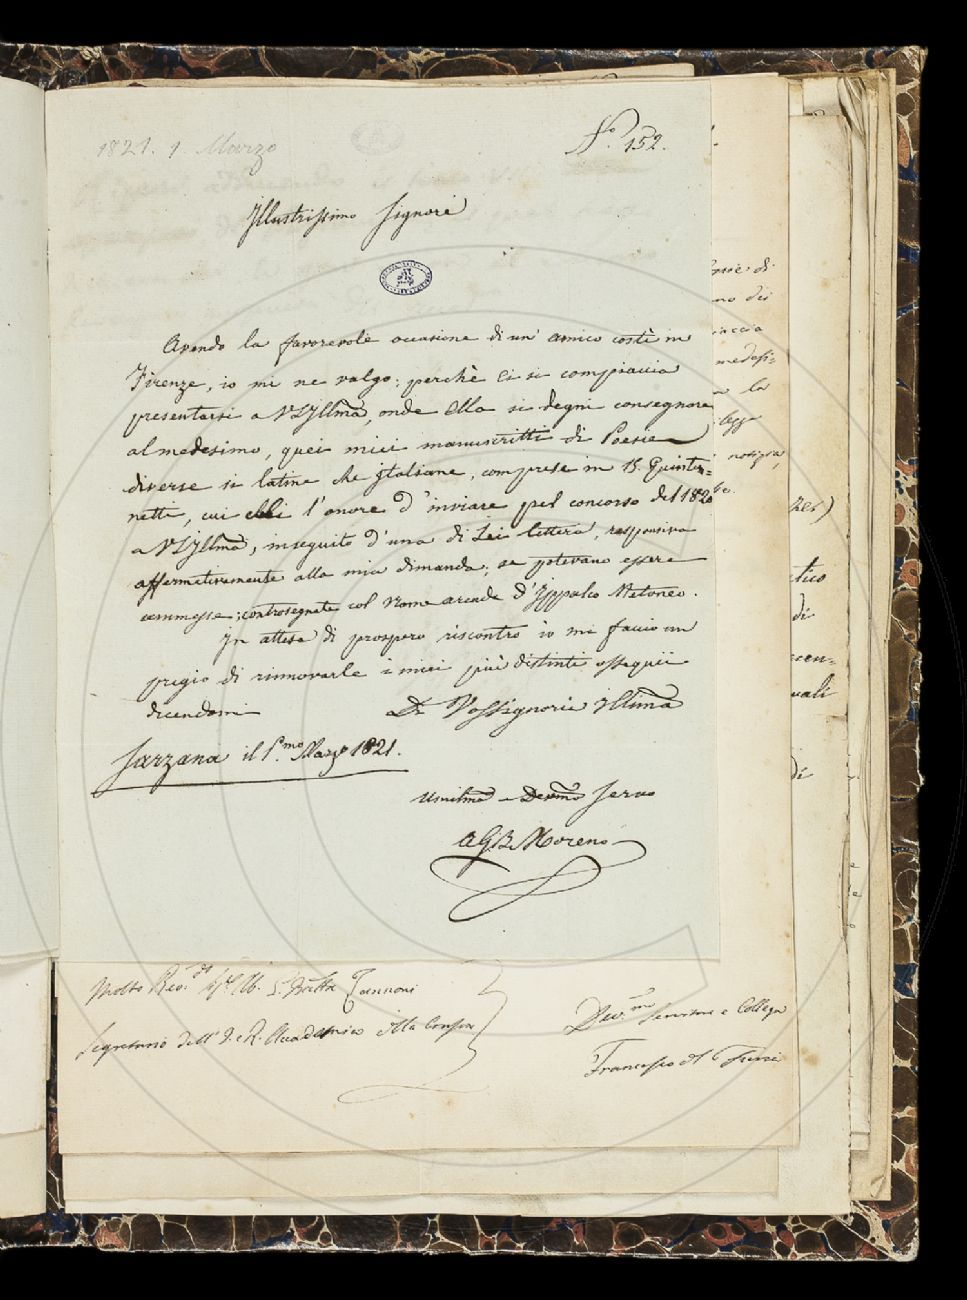 1821. 1 Marzo
N.° 152.
Illustrissimo Signore
Avendo la favorevole occasione di un' amico costì in
Firenze, io mi ne valgo; perchè ei si compiaccia
presentarsi a VSIllma, onde Ella si degni consegnare
al medesimo, quei miei manuscritti di Poesie
diverse sì latine che Italiane, comprese in 15. Quinter-
netti, cui ebbi l'onore d'inviare pel concorso del 1820
a VSIllma, inseguito d'una di Lei lettera, responsiva
affermativamente alla mia dimanda; se potevano essere
ammesse; controsegnate col Nome arcade d'Ippalco Metoneo.
In attesa di prospero riscontro io mi faccio un
pregio di rinnovarle i miei più distinti ossequii
dicendomi
Di Vossignoria Illma
Sarzana il P.mo Marzo 1821.
Umilmo e Devmo Servo
AGB Moreno
Molto Rev.do Sig.re Ab. G. Batta Zannoni
Segretario dell' I. e R. Accademia della Crusca
Dev.mo Servitore e Collega
Francesco del Furia